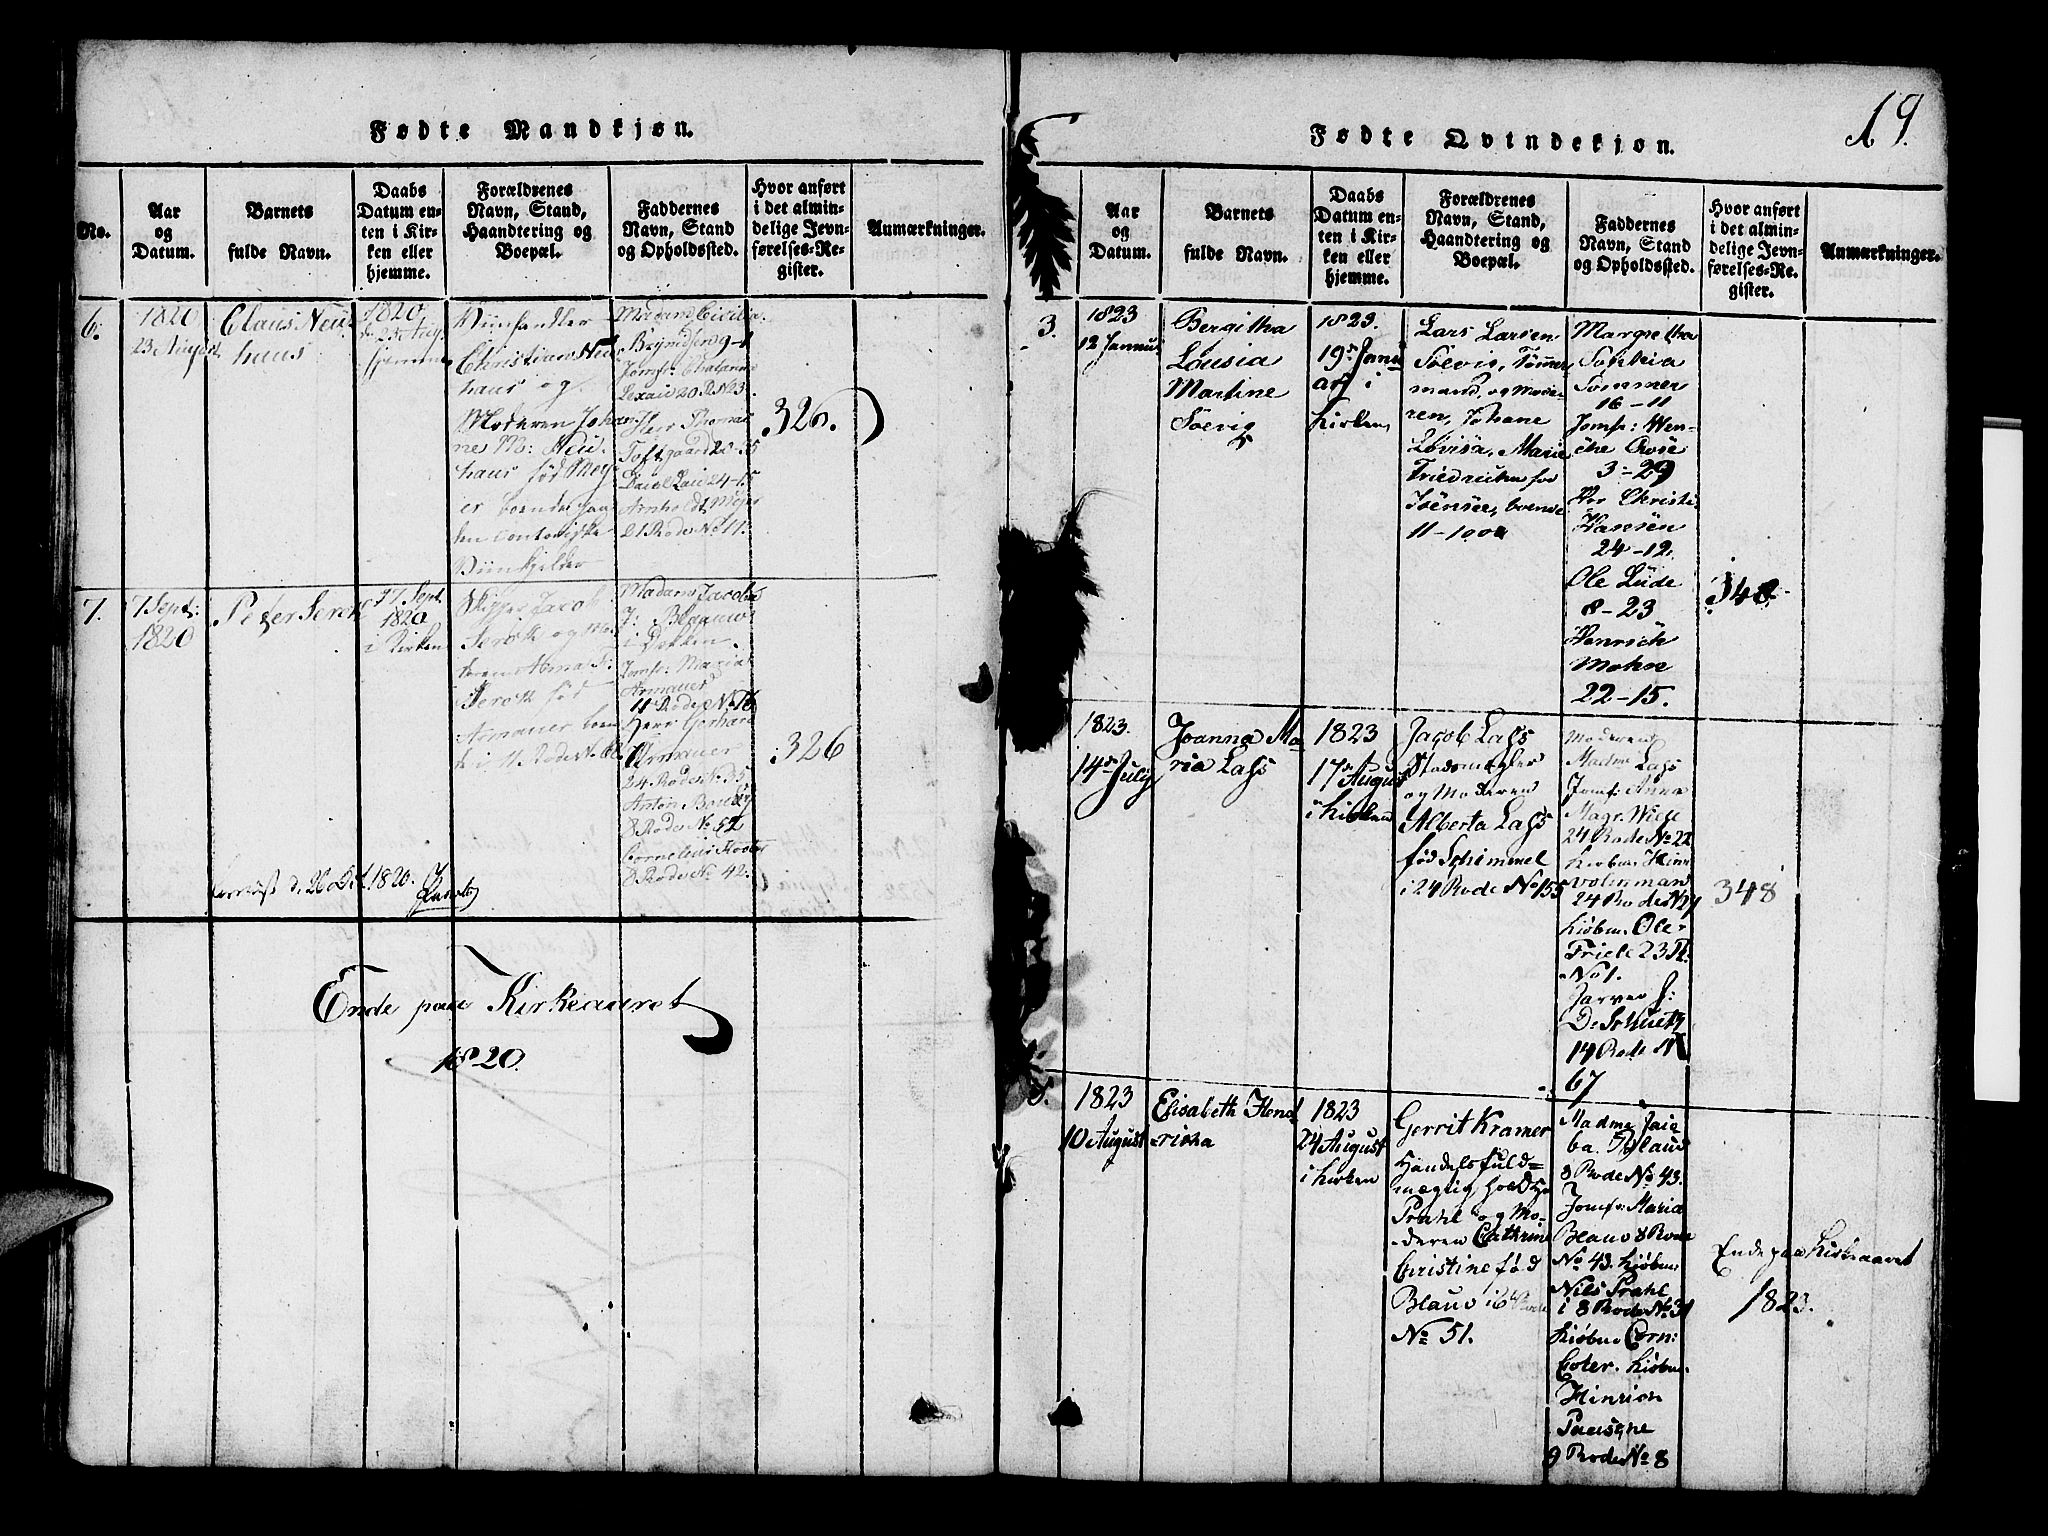 Fødte Mandkjøn.
No.
Aar
og
Datum.
Barnets
fulde Navn.
Daabs
Datum en-
ten i Kir-
ken eller
hjemme.
Forældrenes
Navn, Stand,
Haandtering og
Boepæl.
Faddernes
Navn, Stand
og Opholdssted.
Hvor anført
i det almin-
delige Jevn-
førelses-Re-
gister.
Anmærkninger.
6.
1820
23 August
Claus Neu-
haus
1820
d. 25 Aug.
hjemme
Viinhandler
Christian Neu
haus og
Moderen Johan
ne M: Neu-
haus fød Mey-
er boende paa
den Contoriske
Viinkjelder
Madame Cicilia
Jomfr:
Herr Thomas
Toftgaard 20-35
24-15
Arnholdt Meyer
21 Rode No 11.
326.
7.
7 Sept:
1820
Peter Serok
17. Sept.
1820
i Kirken
Skipper Jacob
Serok og Mo
deren Anna
Serok fød
Armauer boen
de i 11 Rode No
Madame Jacoba
J: Blauw
i Dokken
Jomfr: Maria
Armauer
11 Rode No 16
Herr Gerhard
Armauer
24 Rode No 35
Anton
8 Rode No 52
Cornelius
8 Rode No 42.
326
d. 26 Oct 1820.
Ende paa Kirkeaaret
1820.
19.
Fødte Qvindekjøn.
Aar
og
Datum.
Barnets
fulde Navn.
Daabs
Datum en-
ten i Kir-
ken eller
hjemme.
Forældrenes
Navn, Stand,
Haandtering og
Boepæl.
Faddernes
Navn, Stand
og Opholdssted.
Hvor anført
i det almin-
delige Jevn-
førelses-Re-
gister.
Anmærkninger.
3.
1823
12 Januar
Bergitha
Lousia
Martine
Soevig
1823.
19de Janu
ar i
Kirken
Lars Larsen
Soevig, Tømmer
mand, og Mode-
ren, Johane
Lovisa, Marie
boende
11-100
Margretha
Sophia
Sommer
16-11
Jomfr: Wen-
che
3-29
Hr Christi.
Hansen
24-12.
Ole Lüde
8-23
Henrich
Mohne
22-15.
348
1823.
14de July
Joanna Ma
ria Lass
1823
17de August
i Kirken
Jacob Lass
Stadsmægler
og Moderen
Alberta Lass
fød Schimmel
i 24 Rode No 155
Moderen
Madme Lass
Jomfr: Anna
Magr. Wiese
24 Rode No 22
Kiøbm. Hinr
Wolerman
24 Rode No 27
Kiøbm. Ole
Friele 23 R.
No 1.
De Schuetz
14 Rode No
67
348
5.
1823
10 August
Elisabeth Hend
ricka
1823
24 August
i Kirken
Gerrit Kramer
Handels fuld-
mægtig hos
Prahl og Mo-
deren Cathrine
Christine fød
Blauv i 6te Rode
No 51.
Madme
ba. Blauv
8 Rode No 43.
Jomfr: Maria
Blauv 8 Rode
No 43. Kiøbm.
Nils Prahl
i 8 Rode No 31
Kiøbm Corn:
Coter. Kiøbm.
Hinrich
Paasche
9 Rode No 8
Ende paa Kirkeaaret
1823.